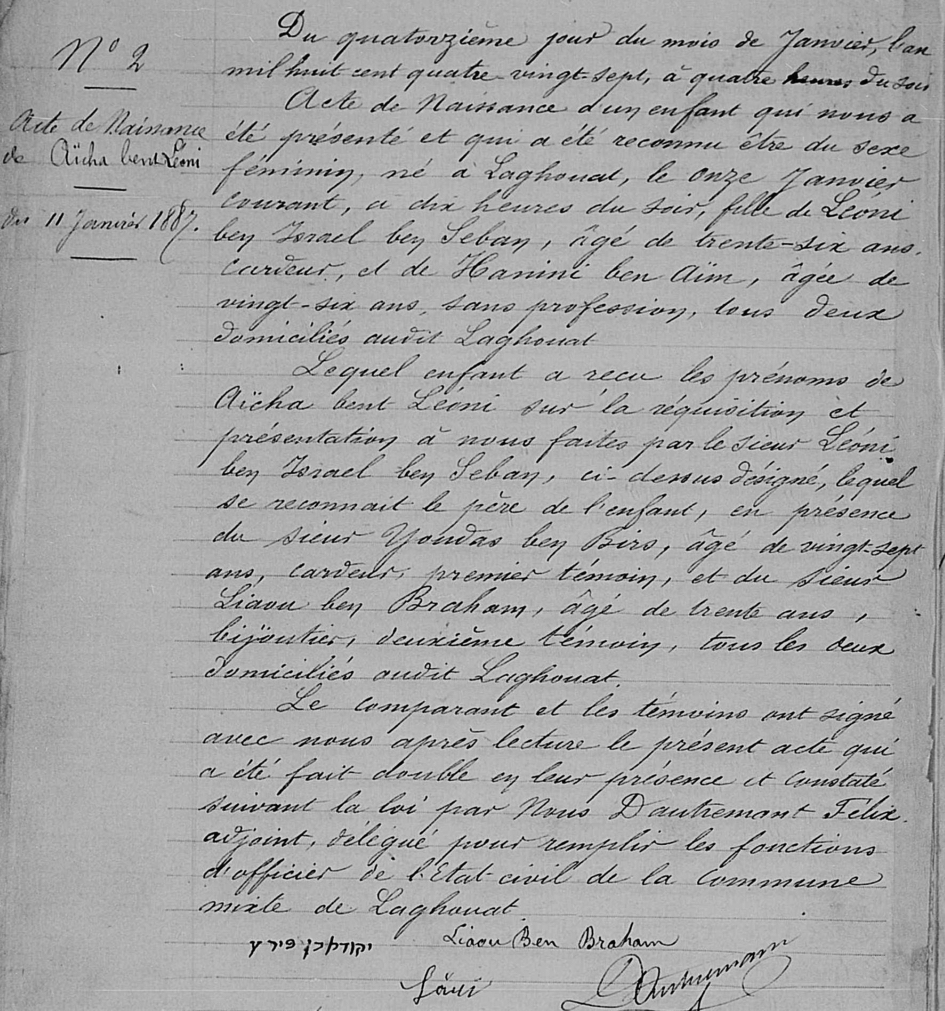 N° 2
Acte de Naissance
de Aïcha bent Léoni
du 11 Janvier 1887.
Du quatorzième jour du mois de Janvier, l'an
mil huit cent quatre-vingt-sept, à quatre heures du soir
Acte de Naissance d'un enfant qui nous a
été présenté et qui a été reconnu être du sexe
féminin, né à Laghouat, le onze Janvier
courant, à dix heures du soir, fille de Léoni
ben Israel ben Seban, âgé de trente-six ans.
cardeur, et de Hanini ben Aïm, âgée de
vingt-six ans, sans profession, tous deux
domiciliés audit Laghouat
Lequel enfant a recu les prénoms de
Aïcha bent Léoni sur la réquisition et
présentation à nous faites par le sieur Léoni
ben Israel ben Seban, ci-dessus désigné, lequel
se reconnait le père de l'enfant, en présence
du sieur Youdas ben Birs, âgé de vingt-sept
ans, cardeur, premier témoin, et du sieur
Liaou ben Braham, âgé de trente ans,
bijoutier, deuxième témoin, tous les deux
domiciliés audit Laghouat.
Le comparant et les témoins ont signé
avec nous après lecture le présent acte qui
a été fait double en leur présence et constaté
suivant la loi par Nous Dautremont Félix.
adjoint, délégué pour remplir les fonctions
d'officier de l'Etat-civil de la Commune
mixte de Laghouat.
פירץ Liaou Ben Braham